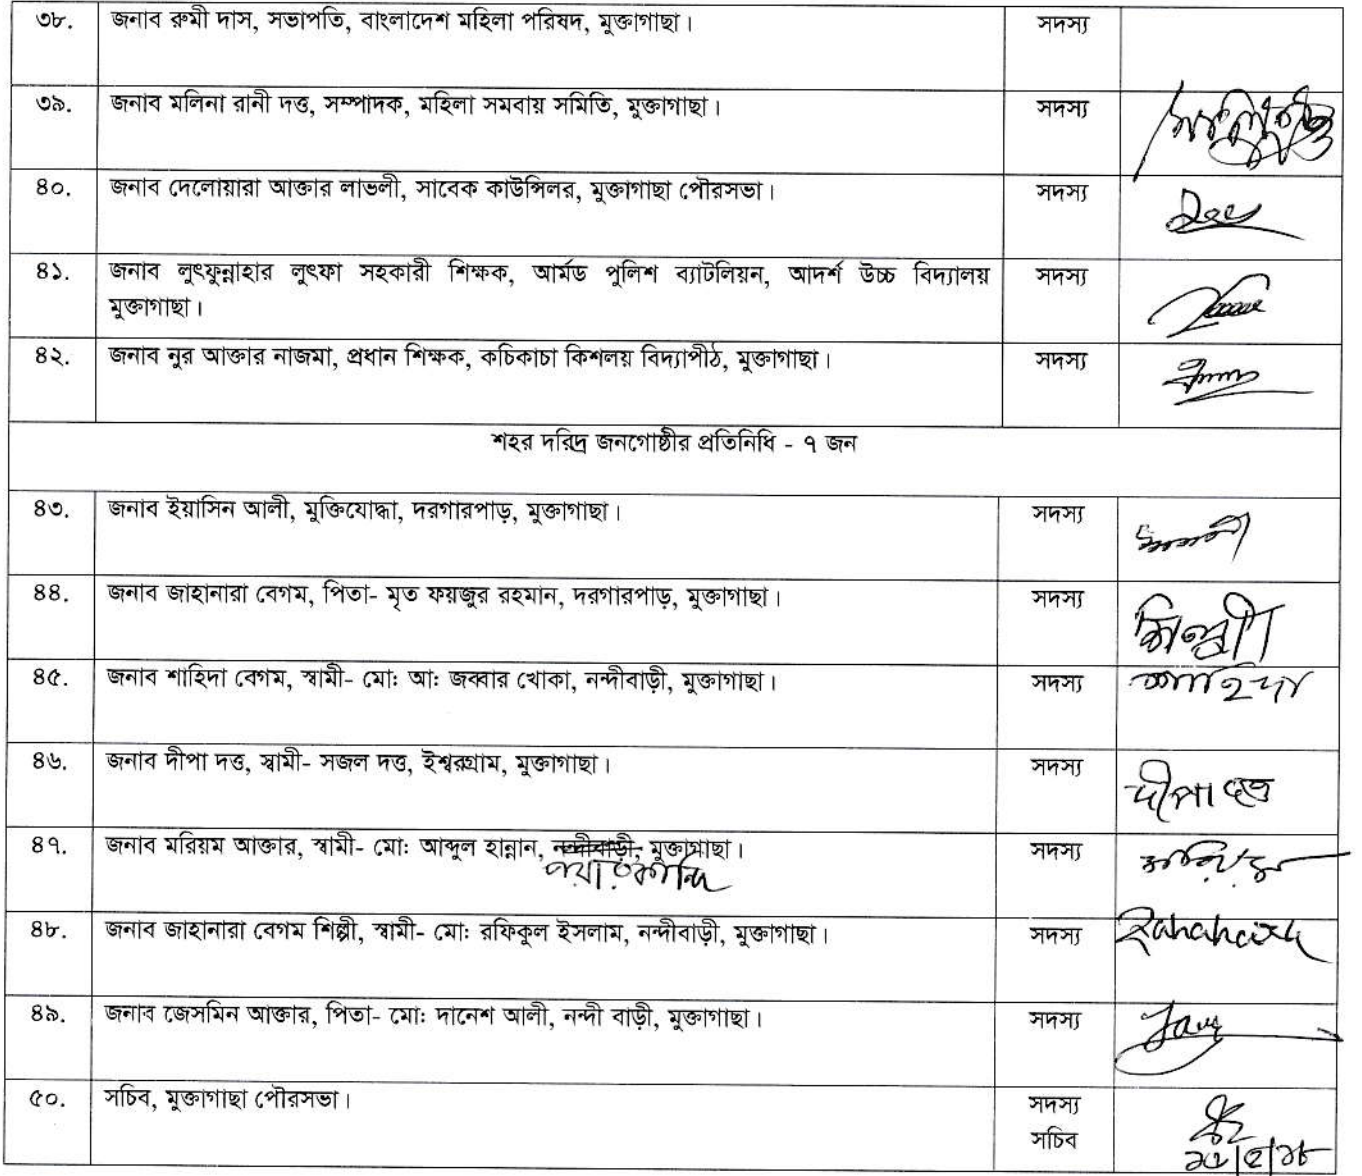 ৩৮. জনাব রুমী দাস, সভাপতি, বাংলাদেশ মহিলা পরিষদ, মুক্তাগাছা। সদস্য
৩৯. জনাব মলিনা রানী দত্ত, সম্পাদক, মহিলা সমবায় সমিতি, মুক্তাগাছা। সদস্য
৪০. জনাব দেলোয়ারা আক্তার লাভলী, সাবেক কাউন্সিলর, মুক্তাগাছা পৌরসভা। সদস্য
৪১. জনাব লুৎফুন্নাহার লুৎফা সহকারী শিক্ষক, আর্মড পুলিশ ব্যাটলিয়ন, আদর্শ উচ্চ বিদ্যালয় সদস্য
মুক্তাগাছা।
৪২. জনাব নুর আক্তার নাজমা, প্রধান শিক্ষক, কচিকাচা কিশলয় বিদ্যাপীঠ, মুক্তাগাছা। সদস্য
শহর দরিদ্র জনগোষ্ঠীর প্রতিনিধি - ৭ জন
৪৩. জনাব ইয়াসিন আলী, মুক্তিযোদ্ধা, দরগারপাড়, মুক্তাগাছা। সদস্য
৪৪. জনাব জাহানারা বেগম, পিতা- মৃত ফয়জুর রহমান, দরগারপাড়, মুক্তাগাছা। সদস্য শিল্পী
৪৫. জনাব শাহিদা বেগম, স্বামী- মোঃ আঃ জব্বার খোকা, নন্দীবাড়ী, মুক্তাগাছা। সদস্য শাহিদা
৪৬. জনাব দীপা দত্ত, স্বামী- সজল দত্ত, ঈশ্বরগ্রাম, মুক্তাগাছা। সদস্য দীপা দত্ত
৪৭. জনাব মরিয়ম আক্তার, স্বামী- মোঃ আব্দুল হান্নান, নন্দীবাড়ী, মুক্তাগাছা। সদস্য
৪৮. জনাব জাহানারা বেগম শিল্পী, স্বামী- মোঃ রফিকুল ইসলাম, নন্দীবাড়ী, মুক্তাগাছা। সদস্য
৪৯. জনাব জেসমিন আক্তার, পিতা- মোঃ দানেশ আলী, নন্দী বাড়ী, মুক্তাগাছা। সদস্য
৫০. সচিব, মুক্তাগাছা পৌরসভা। সদস্য
সচিব